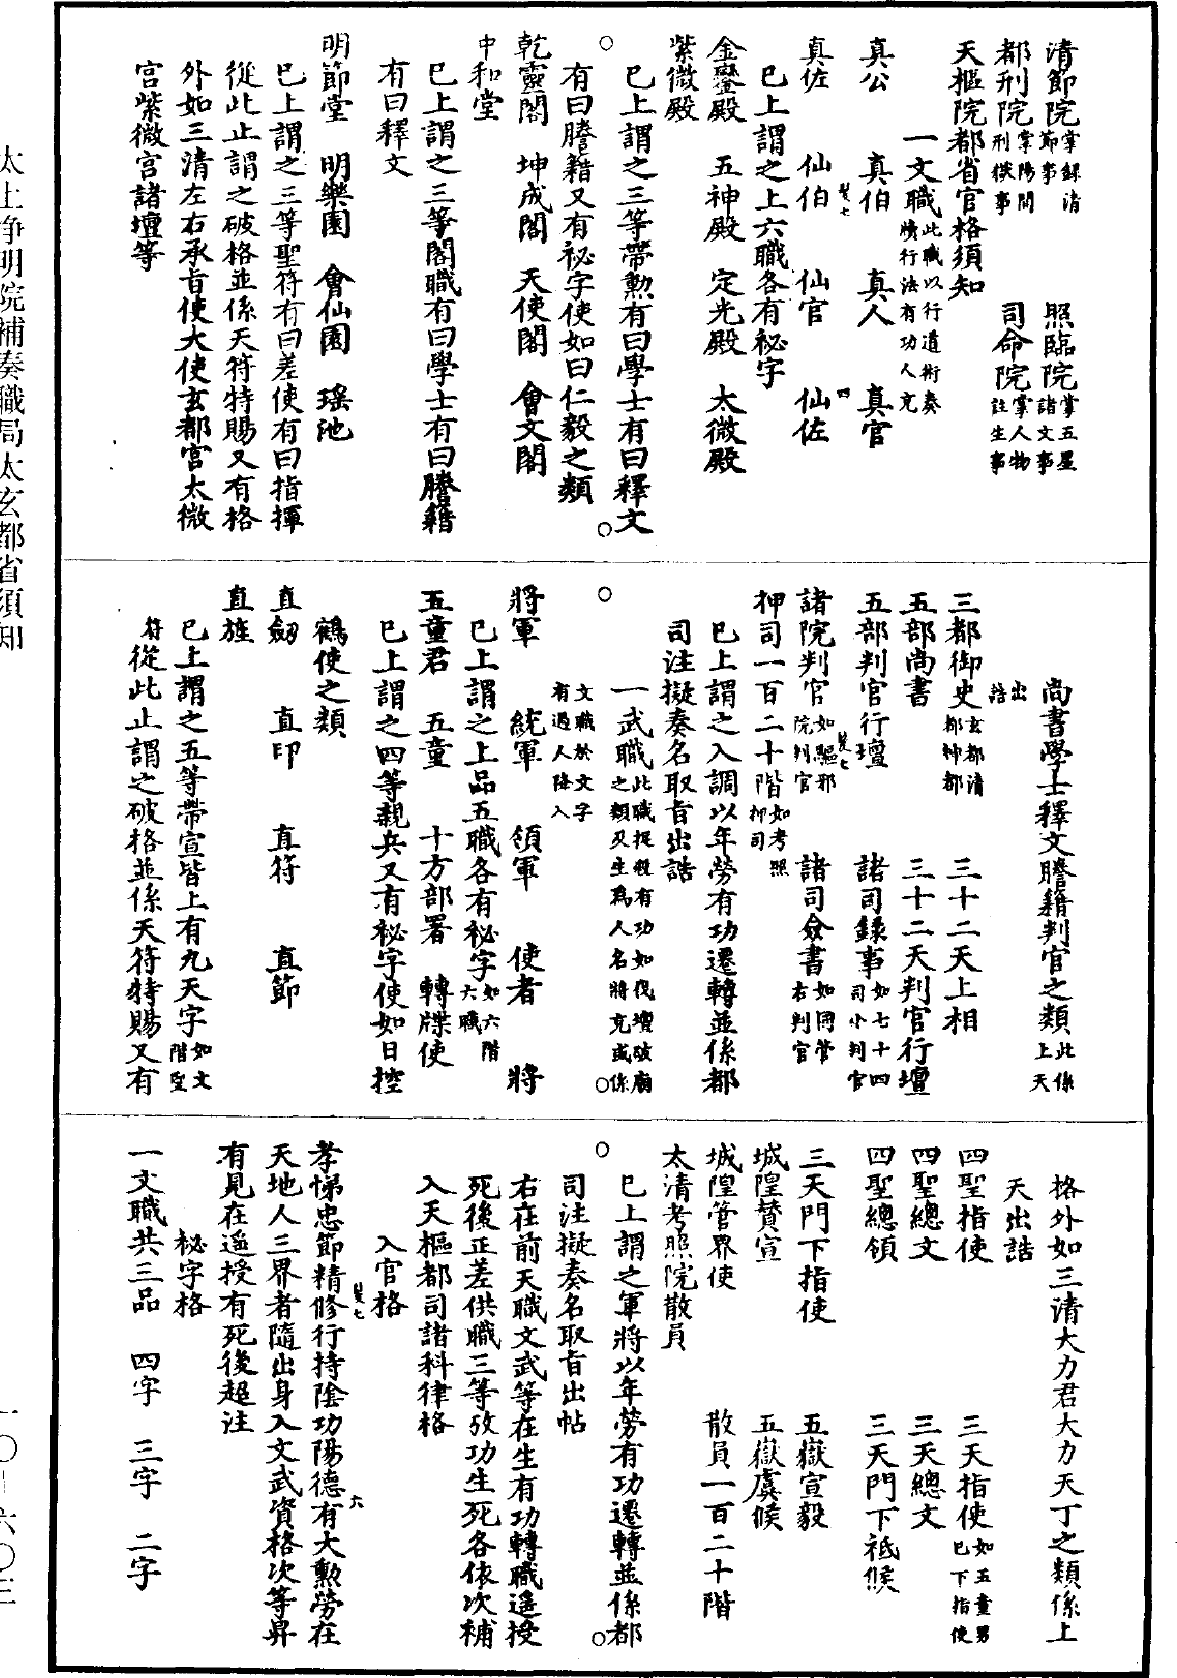 清節院掌錄清節事　照臨院掌五星諸文事
都刑院掌陽間刑獄事　司命院掌人物註生事
天樞院都省官格須知
一文職此職以行道術奏牘行法有功人充
真公　真伯　真人　真官
真佐　仙伯　仙官　仙佐
已上謂之上六職各有祕字
金鑾殿　五神殿　定光殿　太微殿
紫微殿
已上謂之三等帶勲有曰學士有曰釋文
有曰謄籍又有祕字使如曰仁毅之類
乾靈閣　坤成閣　天使閣　會文閣
中和堂
已上謂之三等閣職有曰學士有曰謄籍
有曰釋文
明節堂　明樂園　會仙園　瑶池
已上謂之三等聖符有曰差使有曰指揮
從此止謂之破格並係天符特賜又有格
外如三清左右承旨使大使玄都宮太微
宮紫微宮諸壇等
尚書學士釋文謄籍判官之類此係上天
出誥
三都御史玄都清都神都　三十二天上相
五部尚書　三十二天判官行壇
五部判官行壇　諸司錄事如七十四司小判官
諸院判官如驅邪院判官　諸司僉書如同管右判官
押司一百二十階如考照押司
已上謂之入調以年勞有功遷轉並係都
司注擬奏名取旨出誥
一武職此職捉殺有功如伐壇破廟之類及生爲人名將充或係
文職於文字有過人降入
將軍　統軍　領軍　使者　將
已上謂之上品五職各有祕字如六階六職
五童君　五童　十方部署　轉牒使
已上謂之四等親兵又有祕字使如曰控
鶴使之類
直劒　直印　直符　直節
直旌
已上謂之五等帶宣皆上有九天字如文階聖
符從此止謂之破格並係天符特賜又有
格外如三清大力君大力天丁之類係上
天出誥
四聖指使　三天指使如五童男已下指使
四聖總文　三天總文
四聖總領　三天門下祗候
三天門下指使　五嶽宣毅
城隍贊宣　五嶽虞候
城隍管界使　散員一百二十階
太清考照院散員
已上謂之軍將以年勞有功遷轉並係都
司注擬奏名取旨出帖
右在前天職文武等在生有功轉職遥授
死後正差供職三等攷功生死各依次補
入天樞都司諸科律格
入官格
孝悌忠節精修行持陰功陽德有大勲勞在
天地人三界者隨出身入文武資格次等昇
有見在遥授有死後超注
祕字格
一文職共三品　四字　三字　二字
太上淨明院補奏職局太玄都省須知
一〇—六〇三